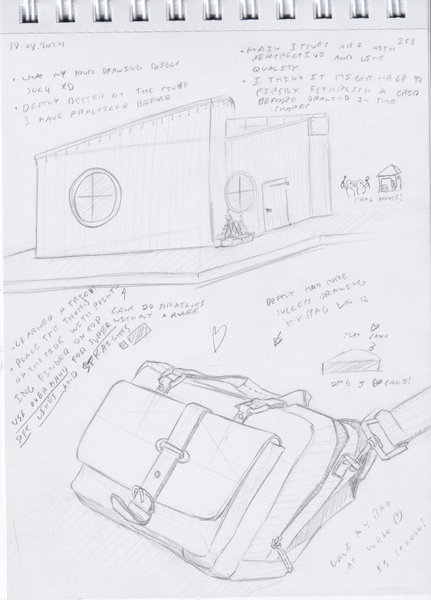 18-08.2024
253
• LMAO MY HOUSE DRAWING SKILLS
SUCK XD
• DEFFLY BETTER AT THE STUFF
I HAVE PRACTICED BEFORE
• MAIN ISSUES ARE WITH
PERSPECTIVE AND LINE
QUALITY.
• I THINK IT MIGHT HELP TO
FIRSTLY ESTABLISH A GRID
BEFORE DRAWING IN THE
SHAPES
FROG HOUSE!
• LEARNED A TRICK!
• PLACE THE THUMB
ON THE SIDE WITH POINT
ING FINGER ON TOP
USE OVERHAND FOR SUPER
LINES AND
4
CAN DO STRAIGHTS
WITHOUT A RULER
STRAIGHTS
DEFFLY HAD MORE
SUCCESS DRAWING
MY BAG
OMG I
LOVE MY BAG
AS WELL